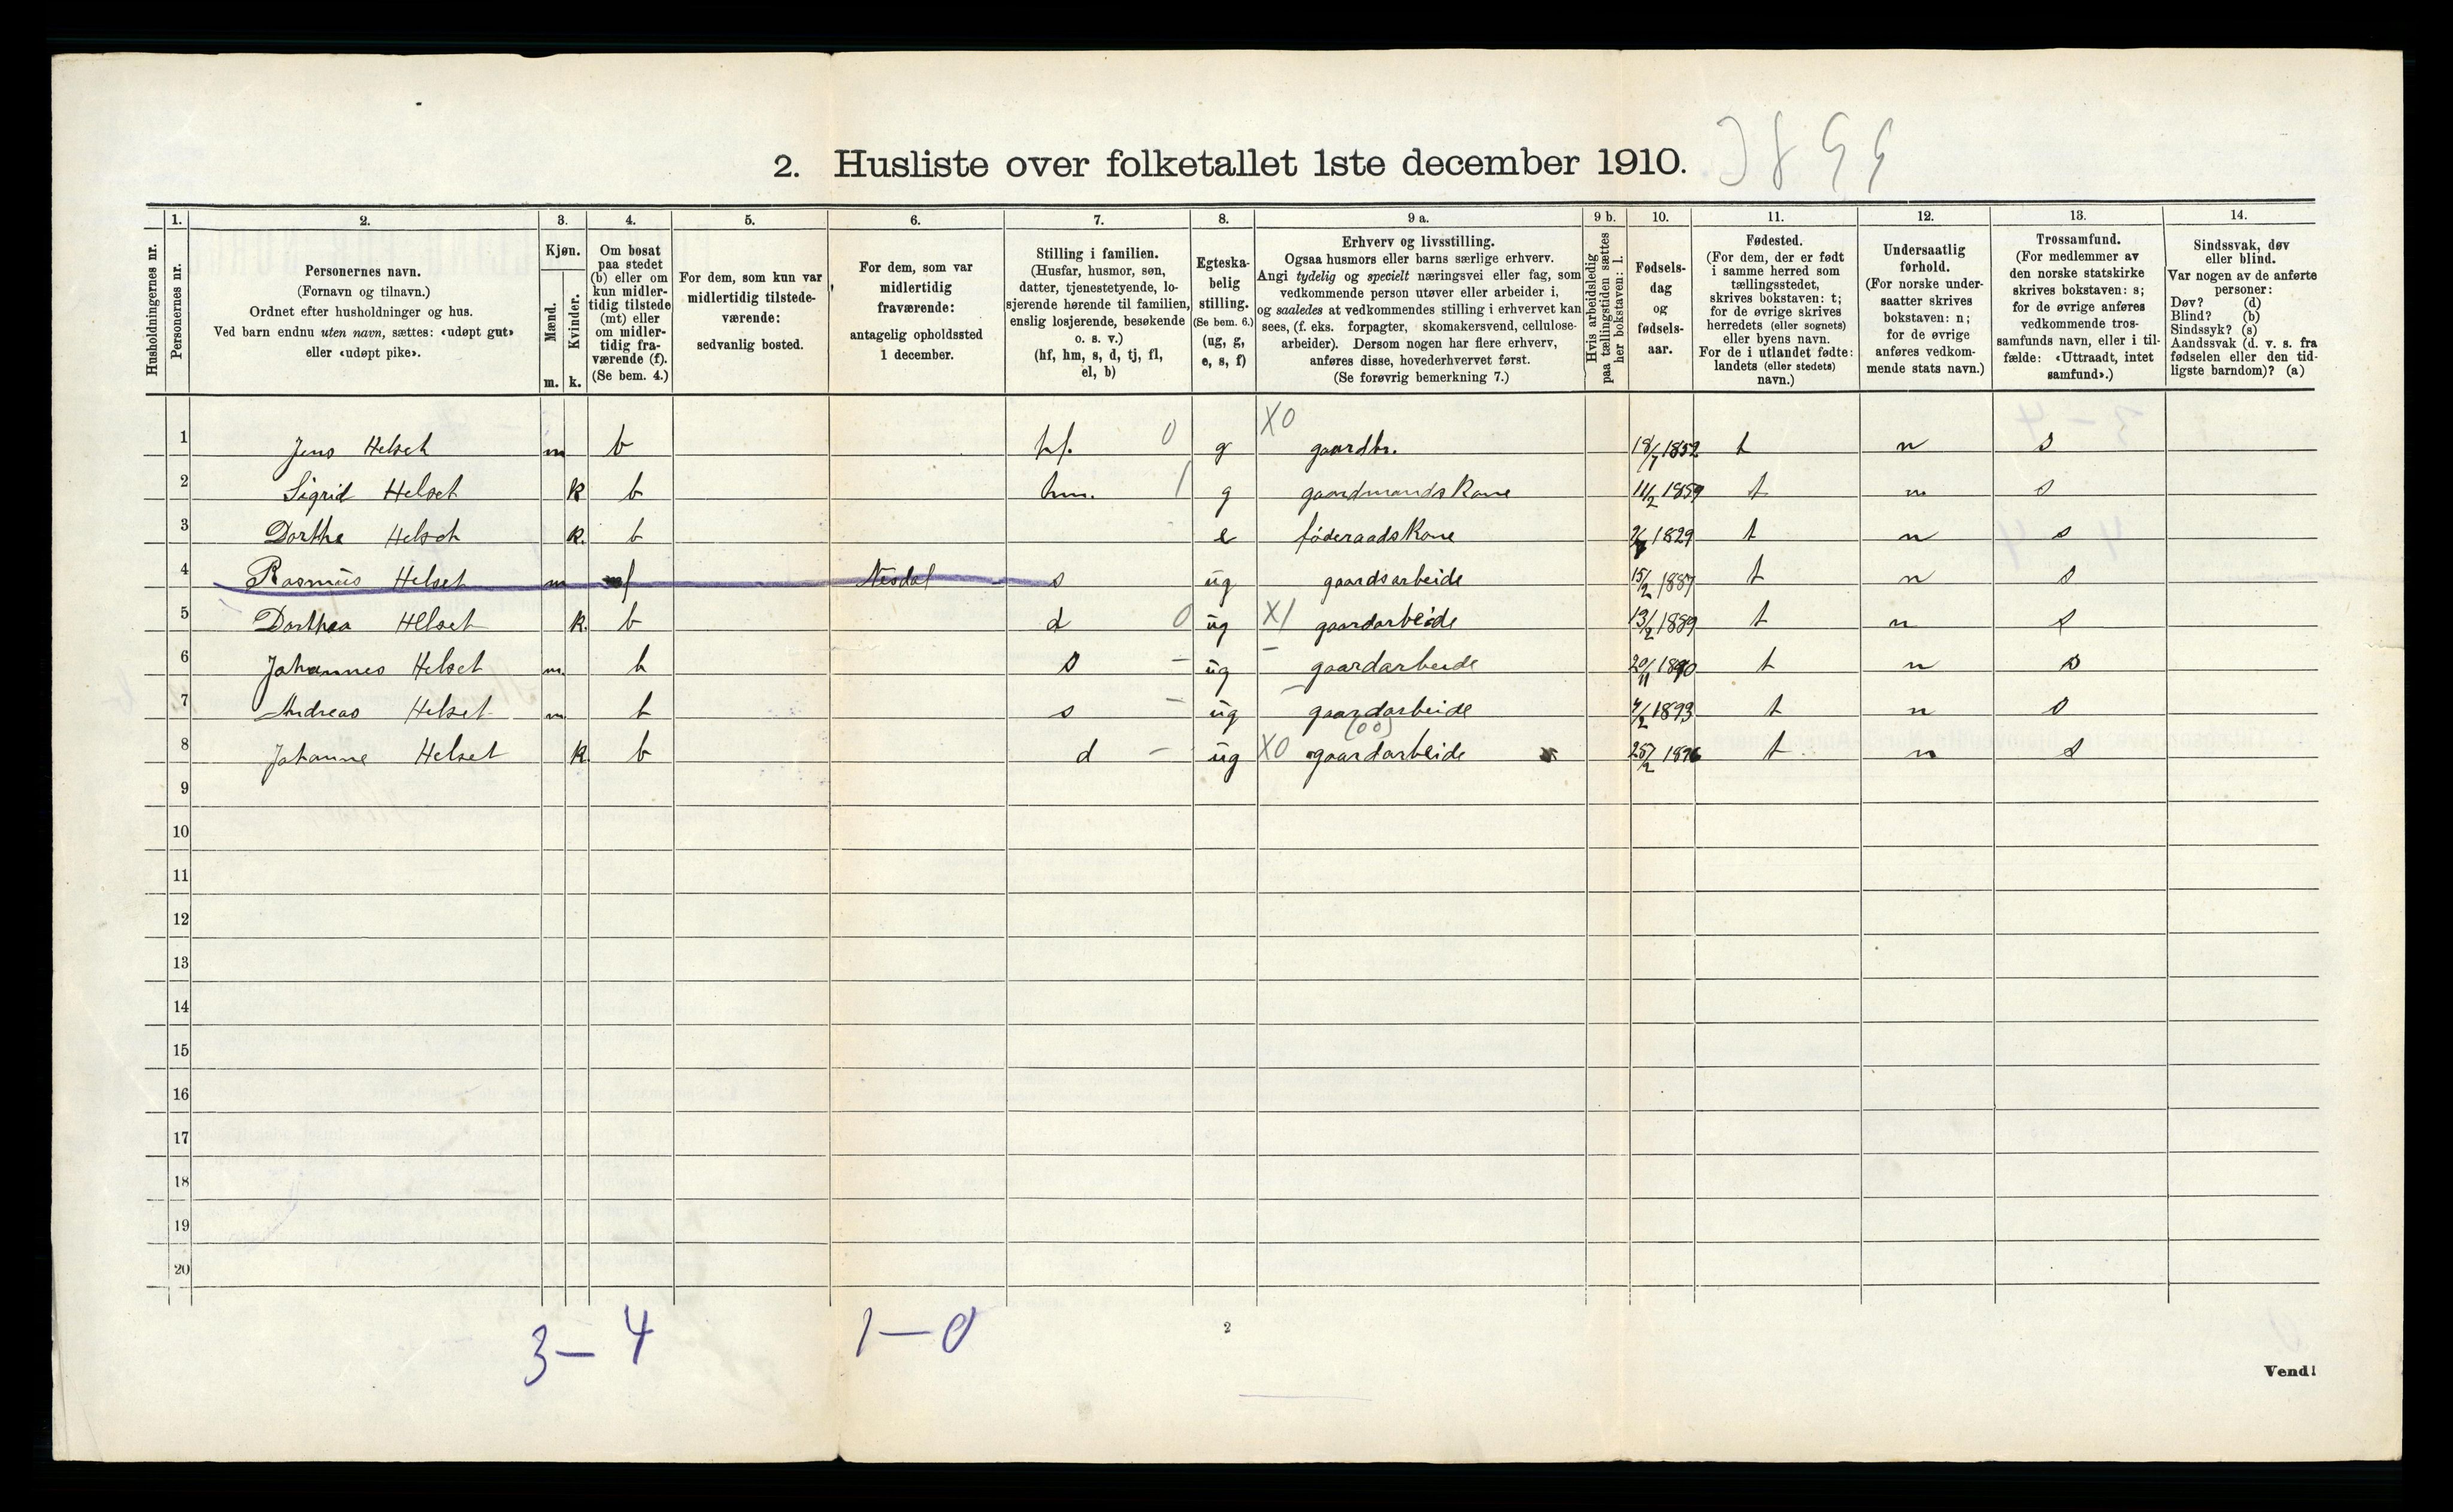 2. Husliste over folketallet 1ste december 1910. 3899
1. 2. 3. 4. 5. 6. 7. 8. 9 a. 9 b. 10. 11. 12. 13. 14.
Husholdningernes nr.
Personernes nr.
Personernes navn.
(Fornavn og tilnavn.)
Ordnet efter husholdninger og hus.
Ved barn endnu uten navn, sættes: «udøpt gut»
eller «udøpt pike».
Kjøn.
Mænd.
Kvinder.
m. k.
Om bosat
paa stedet
(b) eller om
kun midler-
tidig tilstede
(mt) eller
om midler-
tidig fra-
værende (f).
(Se bem. 4.)
For dem, som kun var
midlertidig tilstede-
værende:
sedvanlig bosted.
For dem, som var
midlertidig
fraværende:
antagelig opholdssted
1 december.
Stilling i familien.
(Husfar, husmor, søn,
datter, tjenestetyende, lo-
sjerende hørende til familien,
enslig losjerende, besøkende
o. s. v.)
(hf, hm, s, d, tj, fl,
el, b)
Egteska-
belig
stilling.
(Se bem. 6.)
(ug, g,
e, s, f)
Erhverv og livsstilling.
Ogsaa husmors eller barns særlige erhverv.
Angi tydelig og specielt næringsvei eller fag, som
vedkommende person utøver eller arbeider i,
og saaledes at vedkommendes stilling i erhvervet kan
sees, (f. eks. forpagter, skomakersvend, cellulose-
arbeider). Dersom nogen har flere erhverv,
anføres disse, hovederhvervet først.
(Se forøvrig bemerkning 7.)
Hvis arbeidsledig
paa tællingstiden sættes
her bokstaven: l.
Fødsels-
dag
og
fødsels-
aar.
Fødested.
(For dem, der er født
i samme herred som
tællingsstedet,
skrives bokstaven: t;
for de øvrige skrives
herredets (eller sognets)
eller byens navn.
For de i utlandet fødte:
landets (eller stedets)
navn.)
Undersaatlig
forhold.
(For norske under-
saatter skrives
bokstaven: n;
for de øvrige
anføres vedkom-
mende stats navn.)
Trossamfund.
(For medlemmer av
den norske statskirke
skrives bokstaven: s;
for de øvrige anføres
vedkommende tros-
samfunds navn, eller i til-
fælde: «Uttraadt, intet
samfund».)
Sindssvak, døv
eller blind.
Var nogen av de anførte
personer:
Døv? (d)
Blind? (b)
Sindssyk? (s)
Aandssvak (d. v. s. fra
fødselen eller den tid-
ligste barndom)? (a)
1 Jens Helset m b hf. 0 g X0 gaardbr. 18/7 1852 t n s
2 Sigrid Helset k b hm. 1 g gaardmands kone 11/2 1859 t n s
3 Dorthe Helset k. b e føderaadskone 1829 t n s
4 Rasmus Helset m f Nesdal s ug gaardsarbeide 15/2 1887 t n s
5 Dorthea Helset k. b d 0 ug X1 gaardarbeide 13/2 1889 t n s
6 Johannes Helset m. b s – ug – gaardarbeide 20/11 1890 t n s
7 Andreas Helset m b s – ug – gaardarbeide 4/2 1893 t n s
(00)
8 Johanne Helset k. b d – ug X0 gaardarbeide 25/2 1896 t n s
9
10
11
12
13
14
15
16
17
18
19
20
3 – 4 1 – 0
2
Vend!